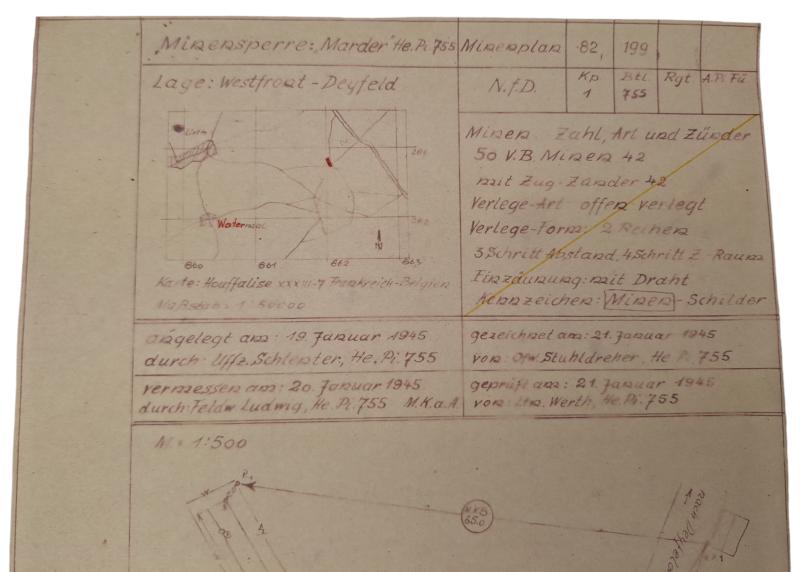 Minensperre: „Marder" He.Pi.755
Minenplan 82, 199
Lage: Westfront - Deyfeld
N.f.D. Kp 1 Btl. 755 Rgt A.Pi.Fü
Minen Zahl, Art und Zünder
50 V.B. Minen 42
mit Zug-Zünder 42
Verlege-Art offen verlegt
Verlege-Form: 2 Reihen
3 Schritt Abstand, 4 Schritt Z-Raum
Einzäunung: mit Draht
Kennzeichen: Minen-Schilder
660 661 662 663
N
Karte: Houffalise XXXIII-7 Frankreich-Belgien
Maßstab 1:50000
angelegt am: 19. Januar 1945
durch: Uffz. Schlenter, He.Pi.755
gezeichnet am: 21. Januar 1945
von: Ofw. Stuhldreher, He.Pi.755
vermessen am: 20. Januar 1945
durch: Feldw. Ludwig, He.Pi.755 M.K.a.A.
geprüft am: 21. Januar 1945
von: Ltn. Werth, He.Pi.755
M = 1:500
nach Deyfeld